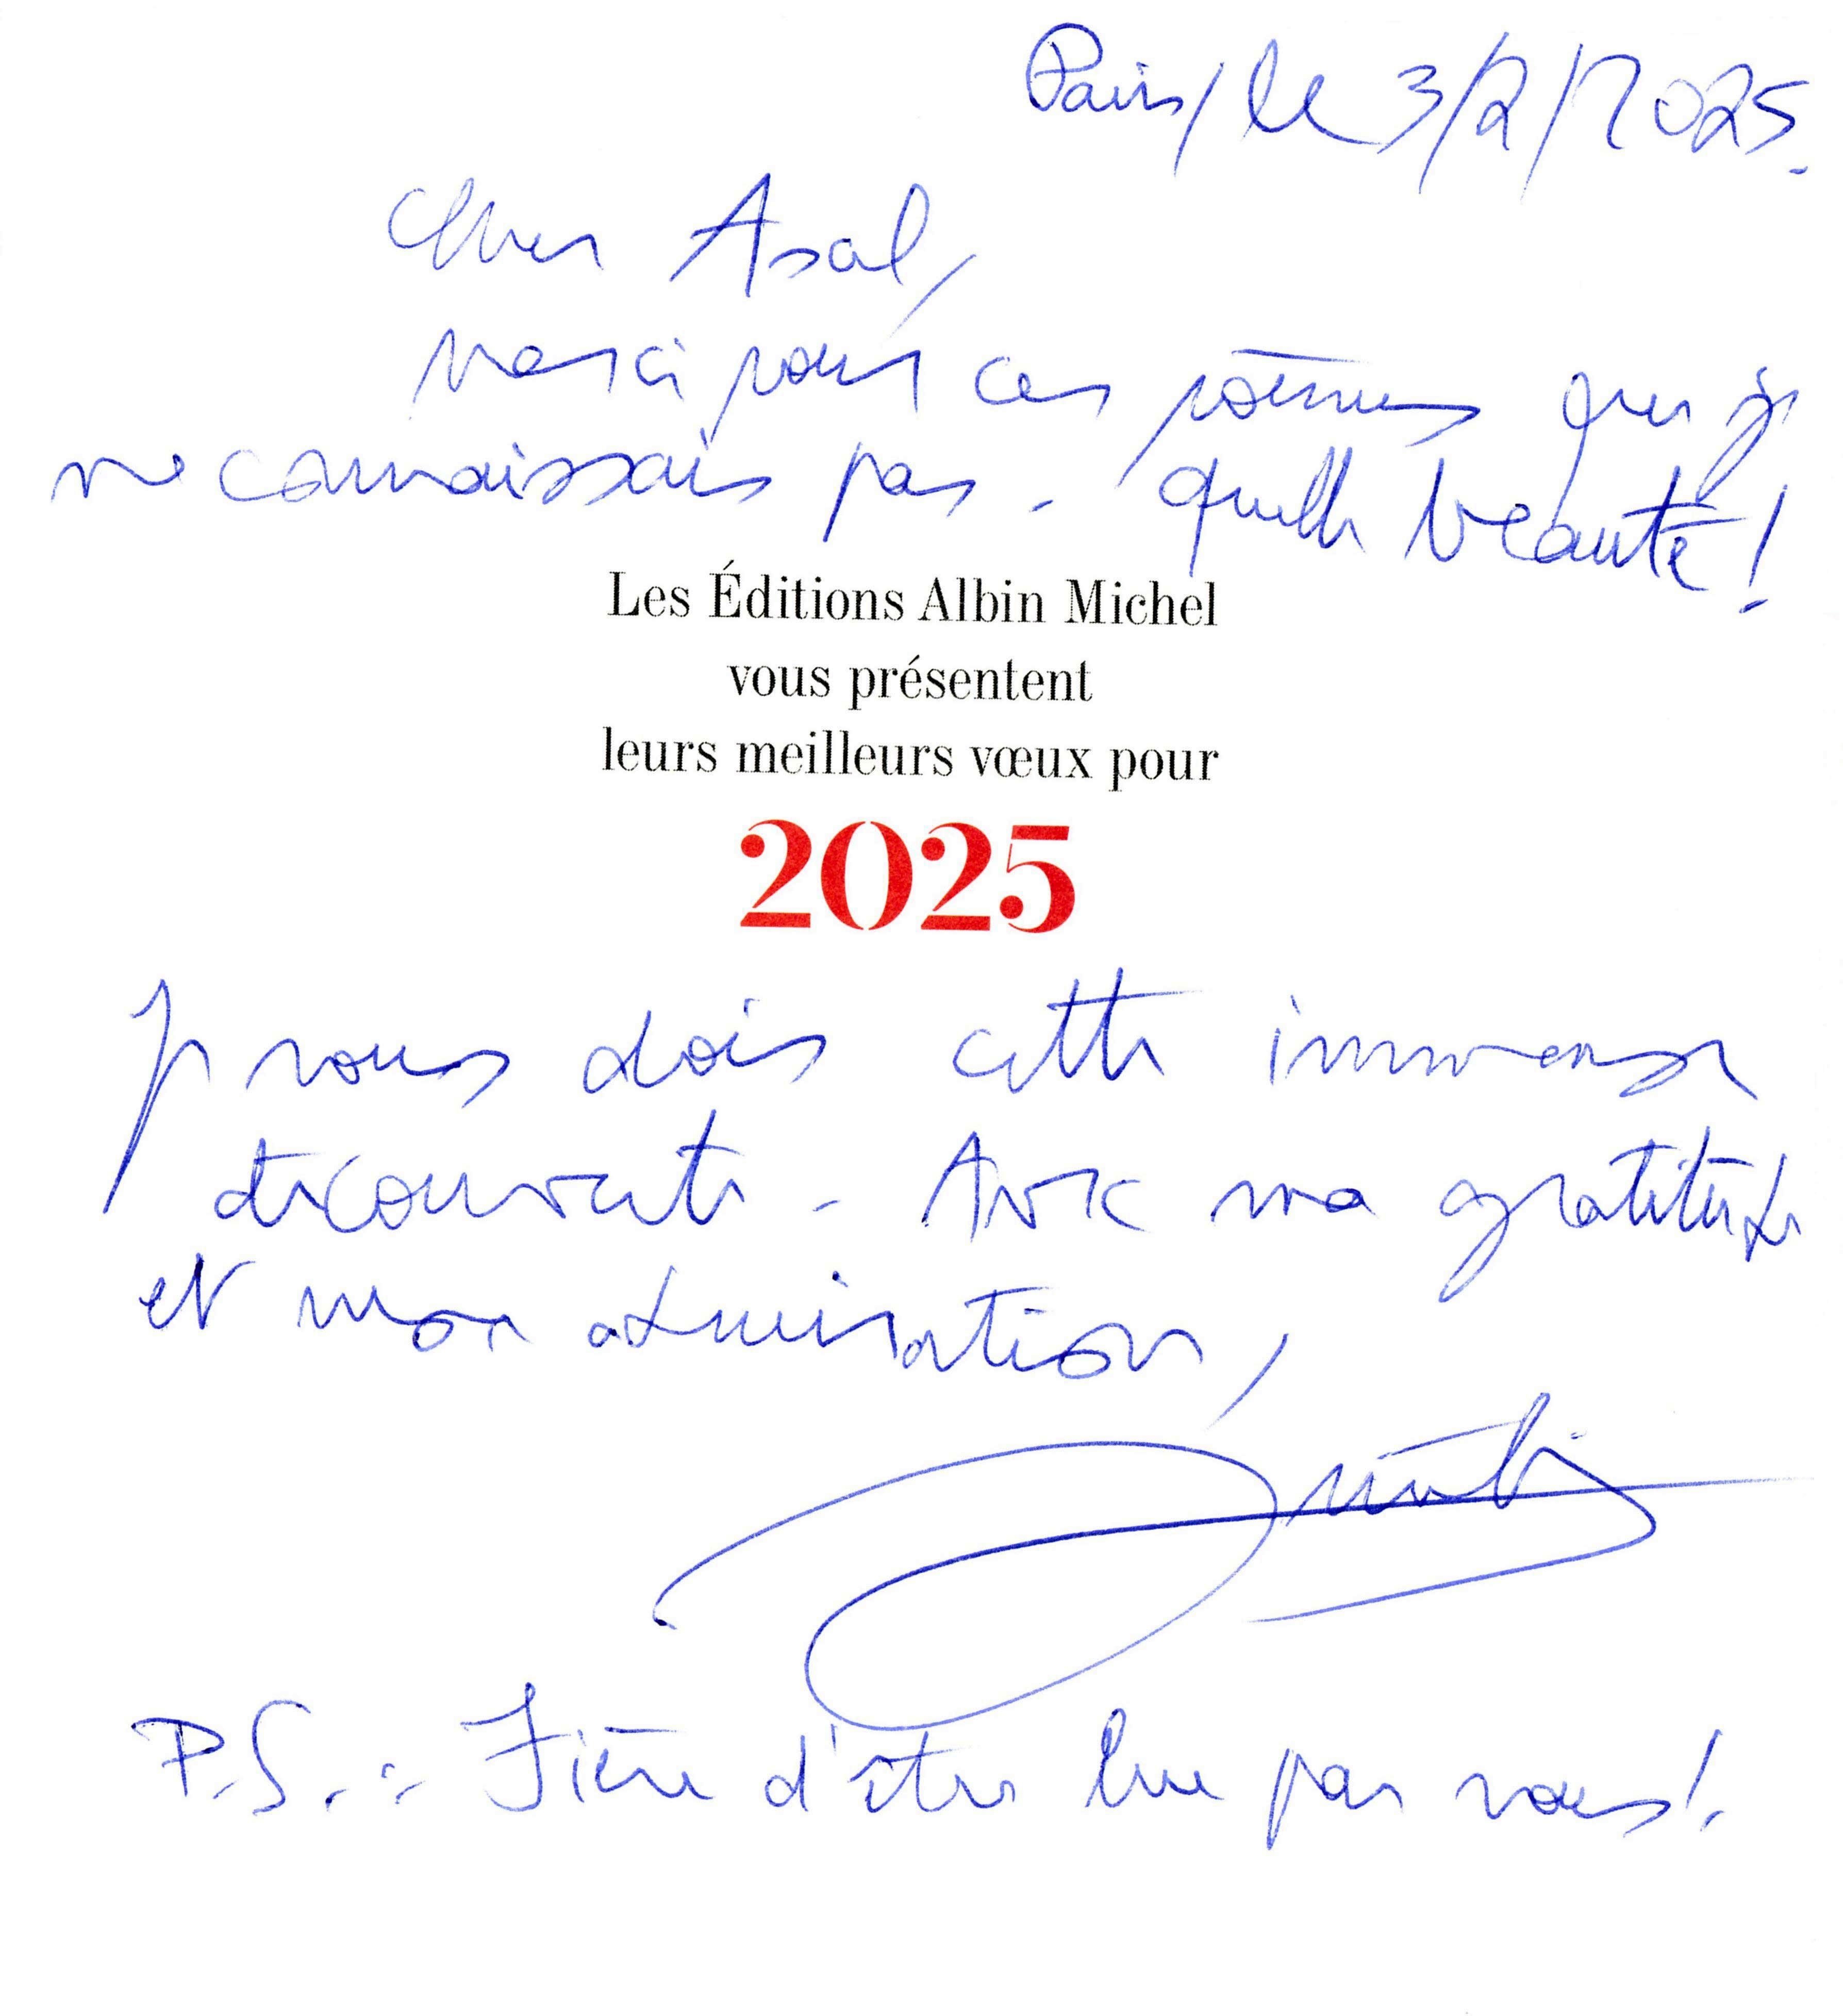 Paris, le 3/2/2025.
Cher Asal,
Merci pour ces poèmes que je
ne connaissais pas. Quelle beauté !
Les Éditions Albin Michel
vous présentent
leurs meilleurs vœux pour
2025
Je vous dois cette immense
découverte. Avec ma gratitude
et mon admiration,
P.S. : Fière d'être lue par vous !